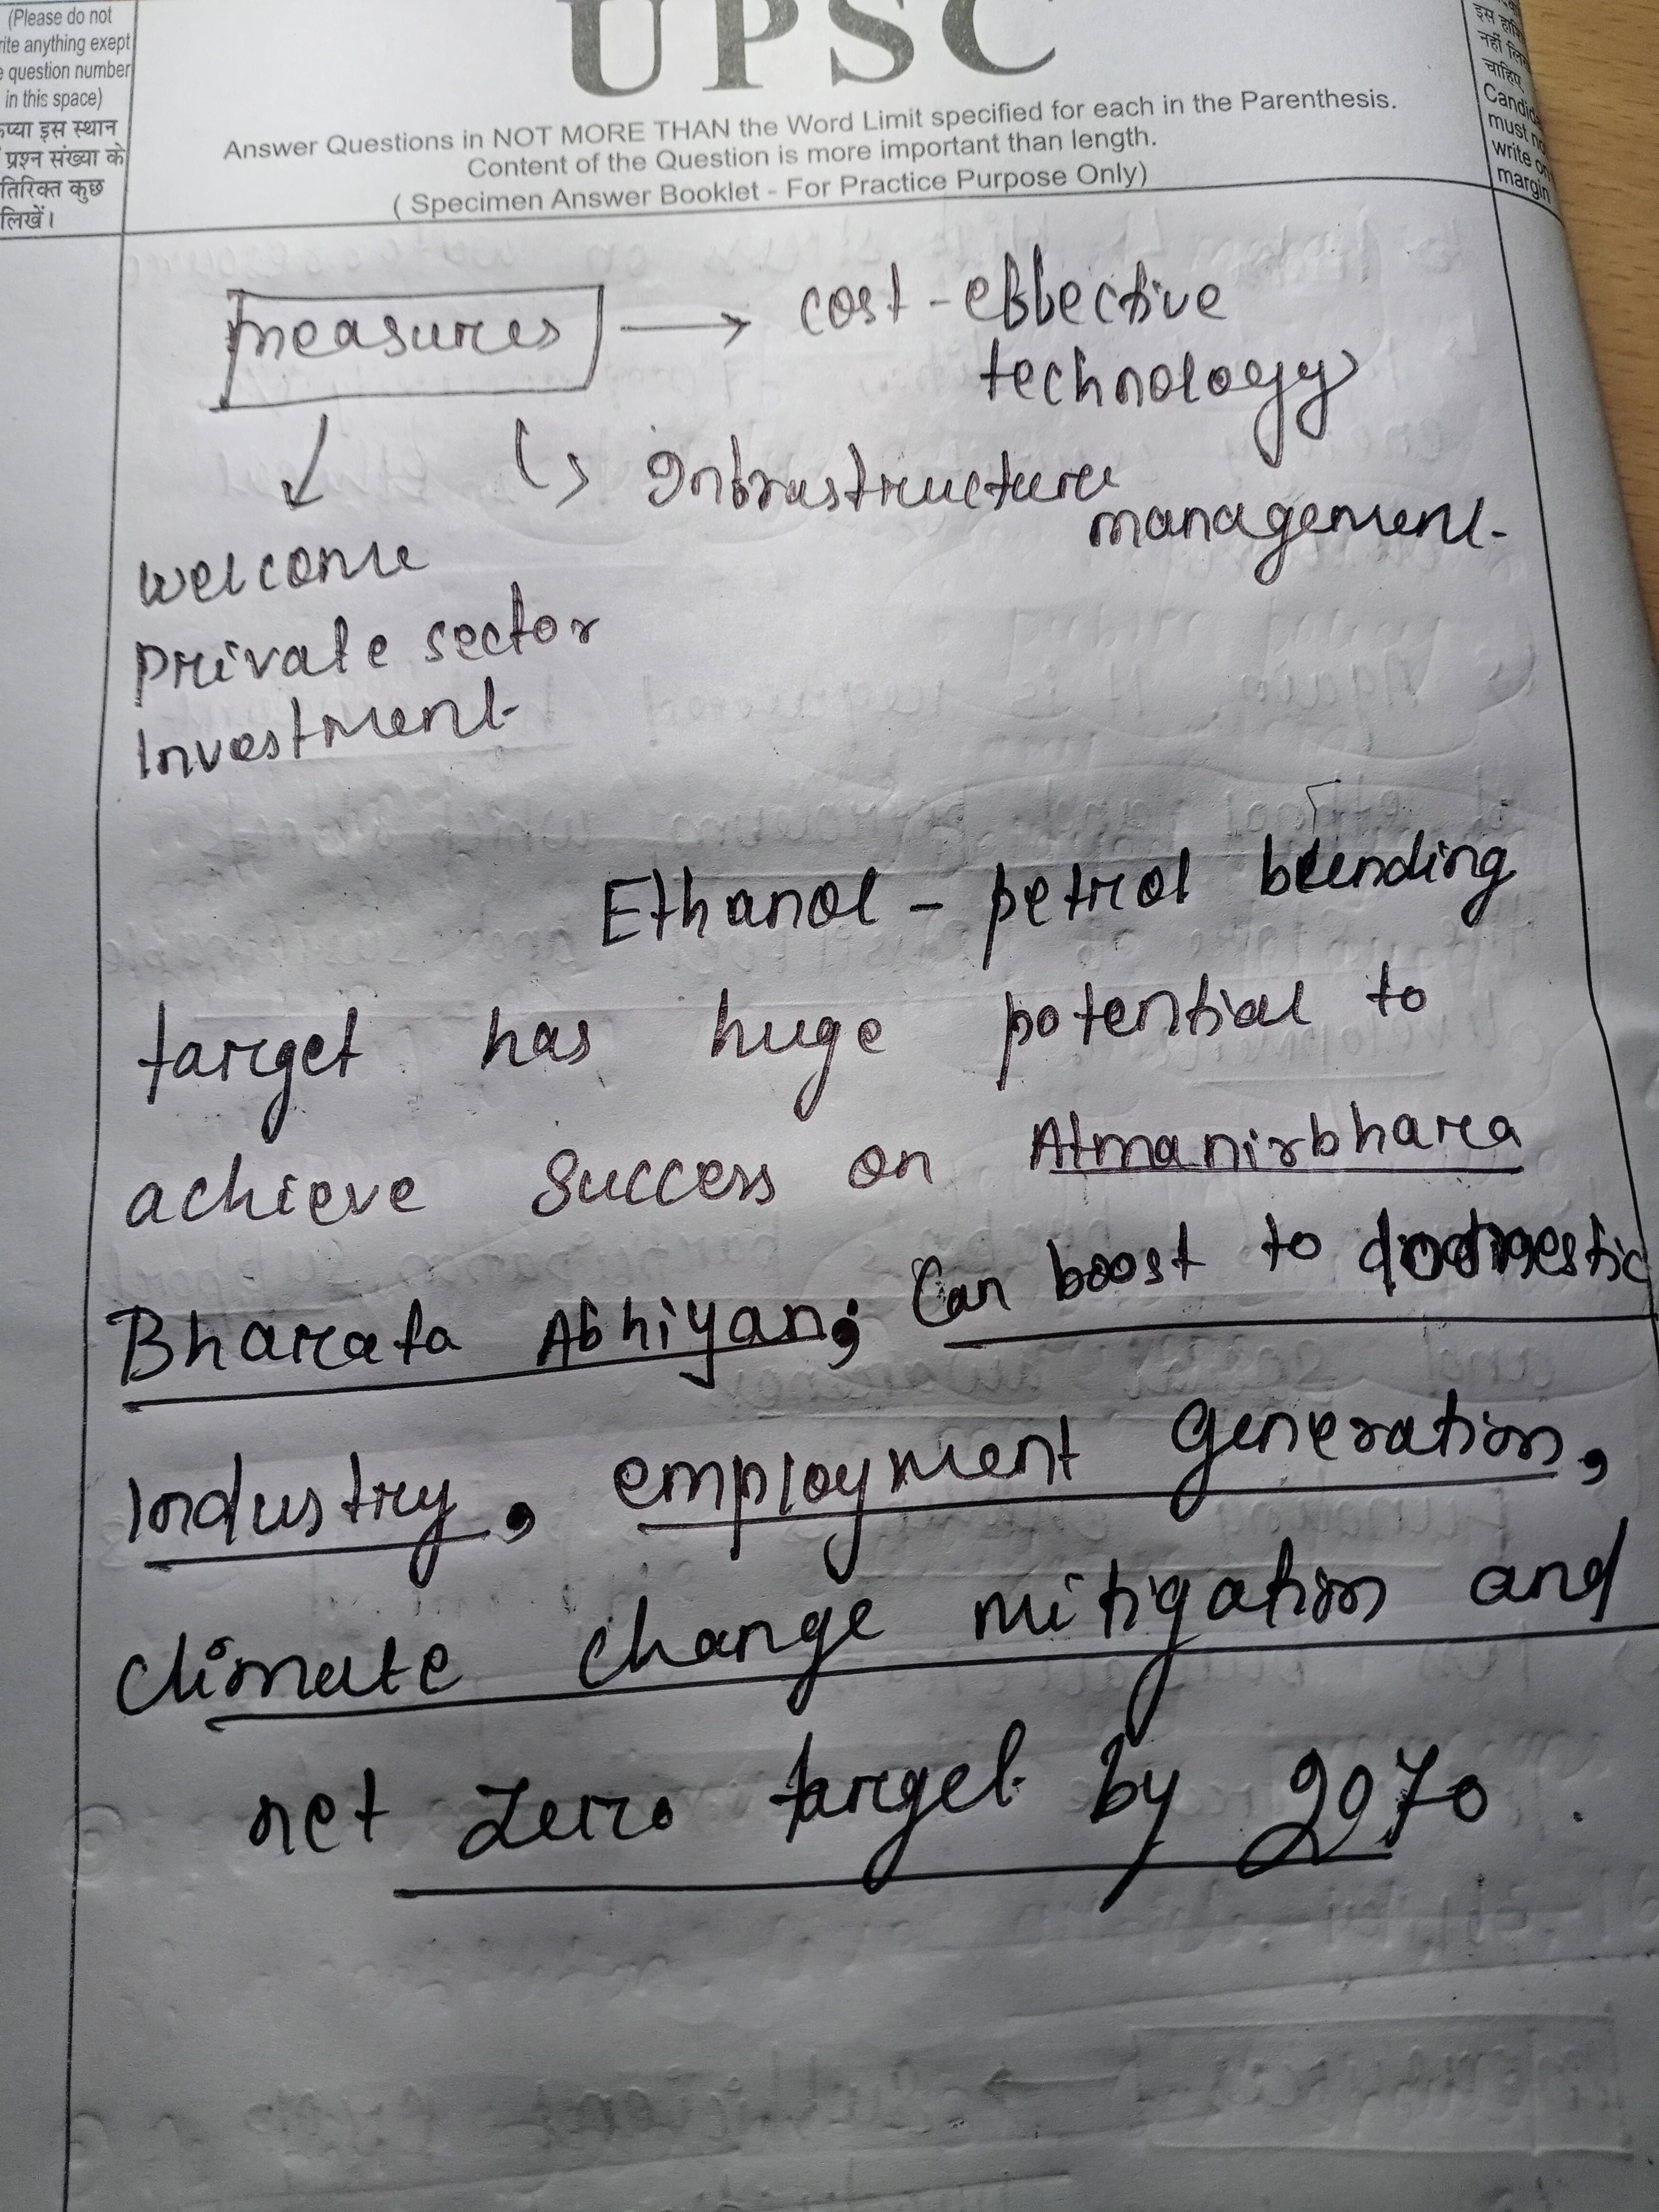 (Please do not
rite anything exept
e question number
in this space)
इस स्थान
प्रश्न संख्या के
तिरिक्त कुछ
लिखें।
UPSC
Answer Questions in NOT MORE THAN the Word Limit specified for each in the Parenthesis.
Content of the Question is more important than length.
( Specimen Answer Booklet - For Practice Purpose Only)
नहीं
चाहिए
must
write on
margin
measures → cost-effective
technology
↳ Infrastructure
management.
↓
Welcome
private sector
Investment
Ethanol - petrol blending
target has huge potential to
achieve success on Atmanirbhara
Bharata Abhiyan; Can boost to domestic
Industry, employment generation,
climate change mitigation and
net zero target by 2070.